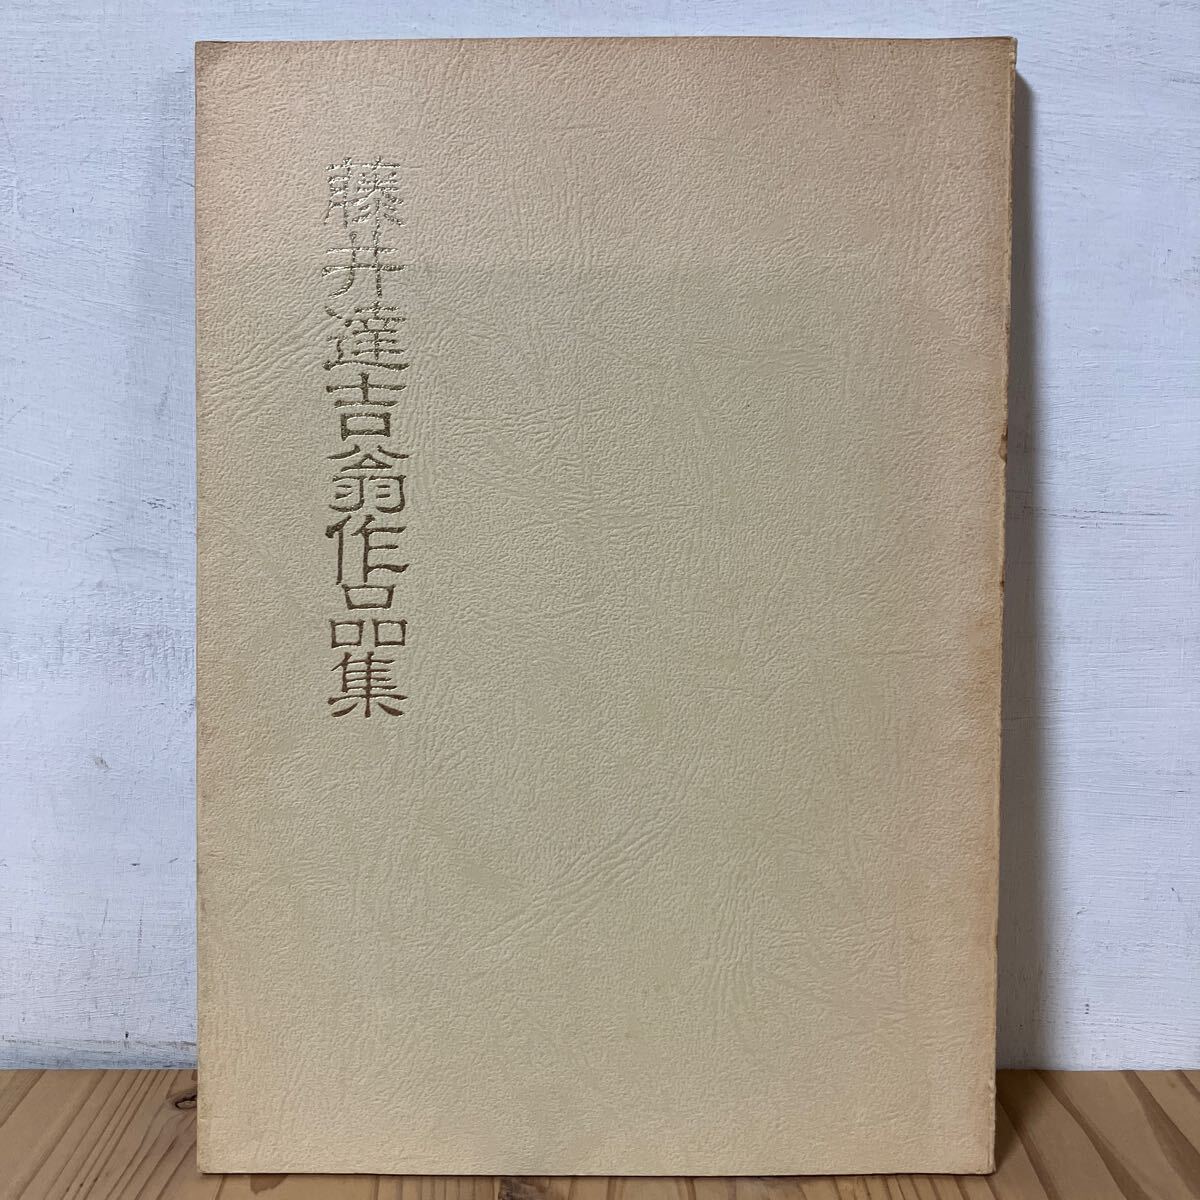 藤井達吉翁作品集